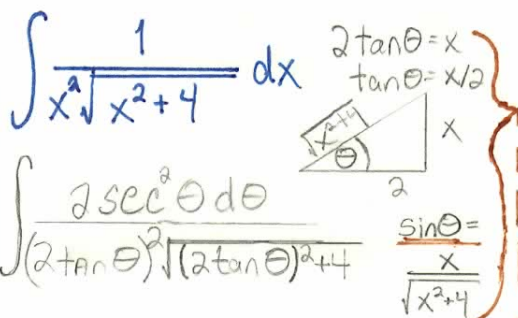 ∫ 1 / x²√(x²+4) dx
2tanθ=x
tanθ=x/2
√x²+4
θ
x
2
∫ 2sec²θdθ / (2tanθ)²√((2tanθ)²+4)
sinθ=
x / √(x²+4)